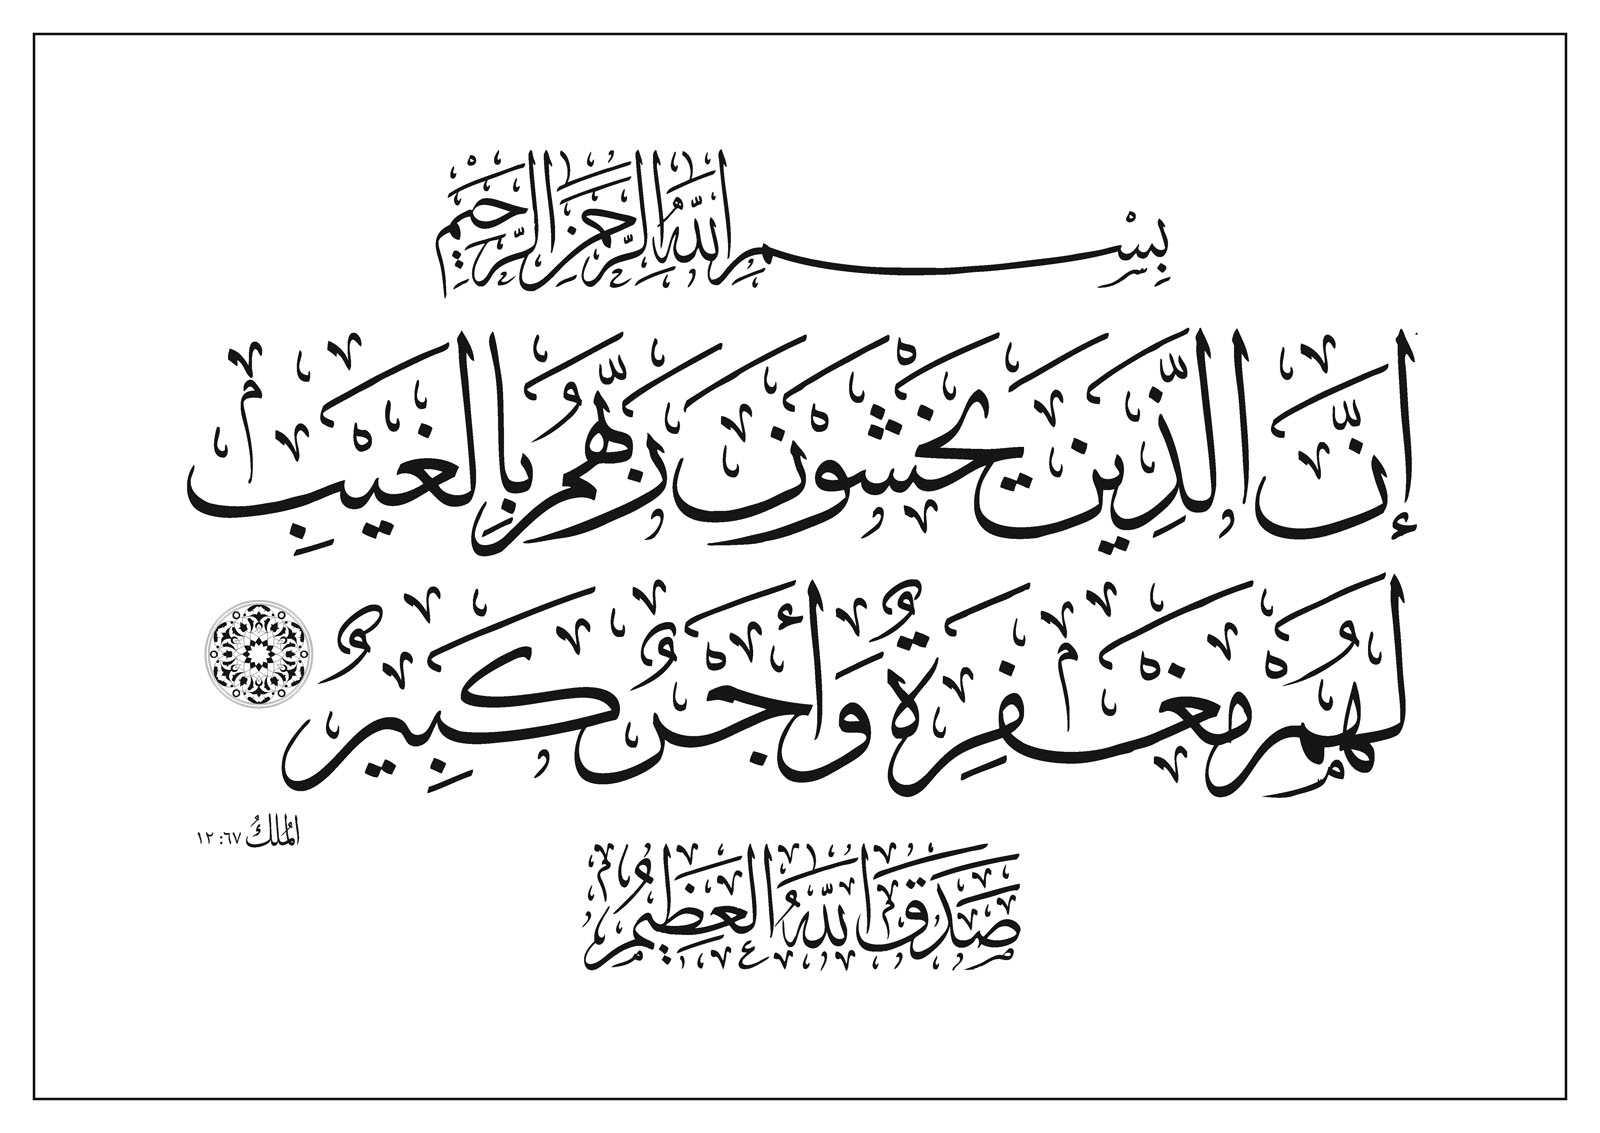 بِسْمِ اللَّهِ الرَّحْمَنِ الرَّحِيمِ
إِنَّ الَّذِينَ يَخْشَوْنَ رَبَّهُمْ بِالْغَيْبِ
لَهُمْ مَغْفِرَةٌ وَأَجْرٌ كَبِيرٌ
الْمُلكُ ٦٧: ١٢
صَدَقَ اللَّهُ الْعَظِيمُ